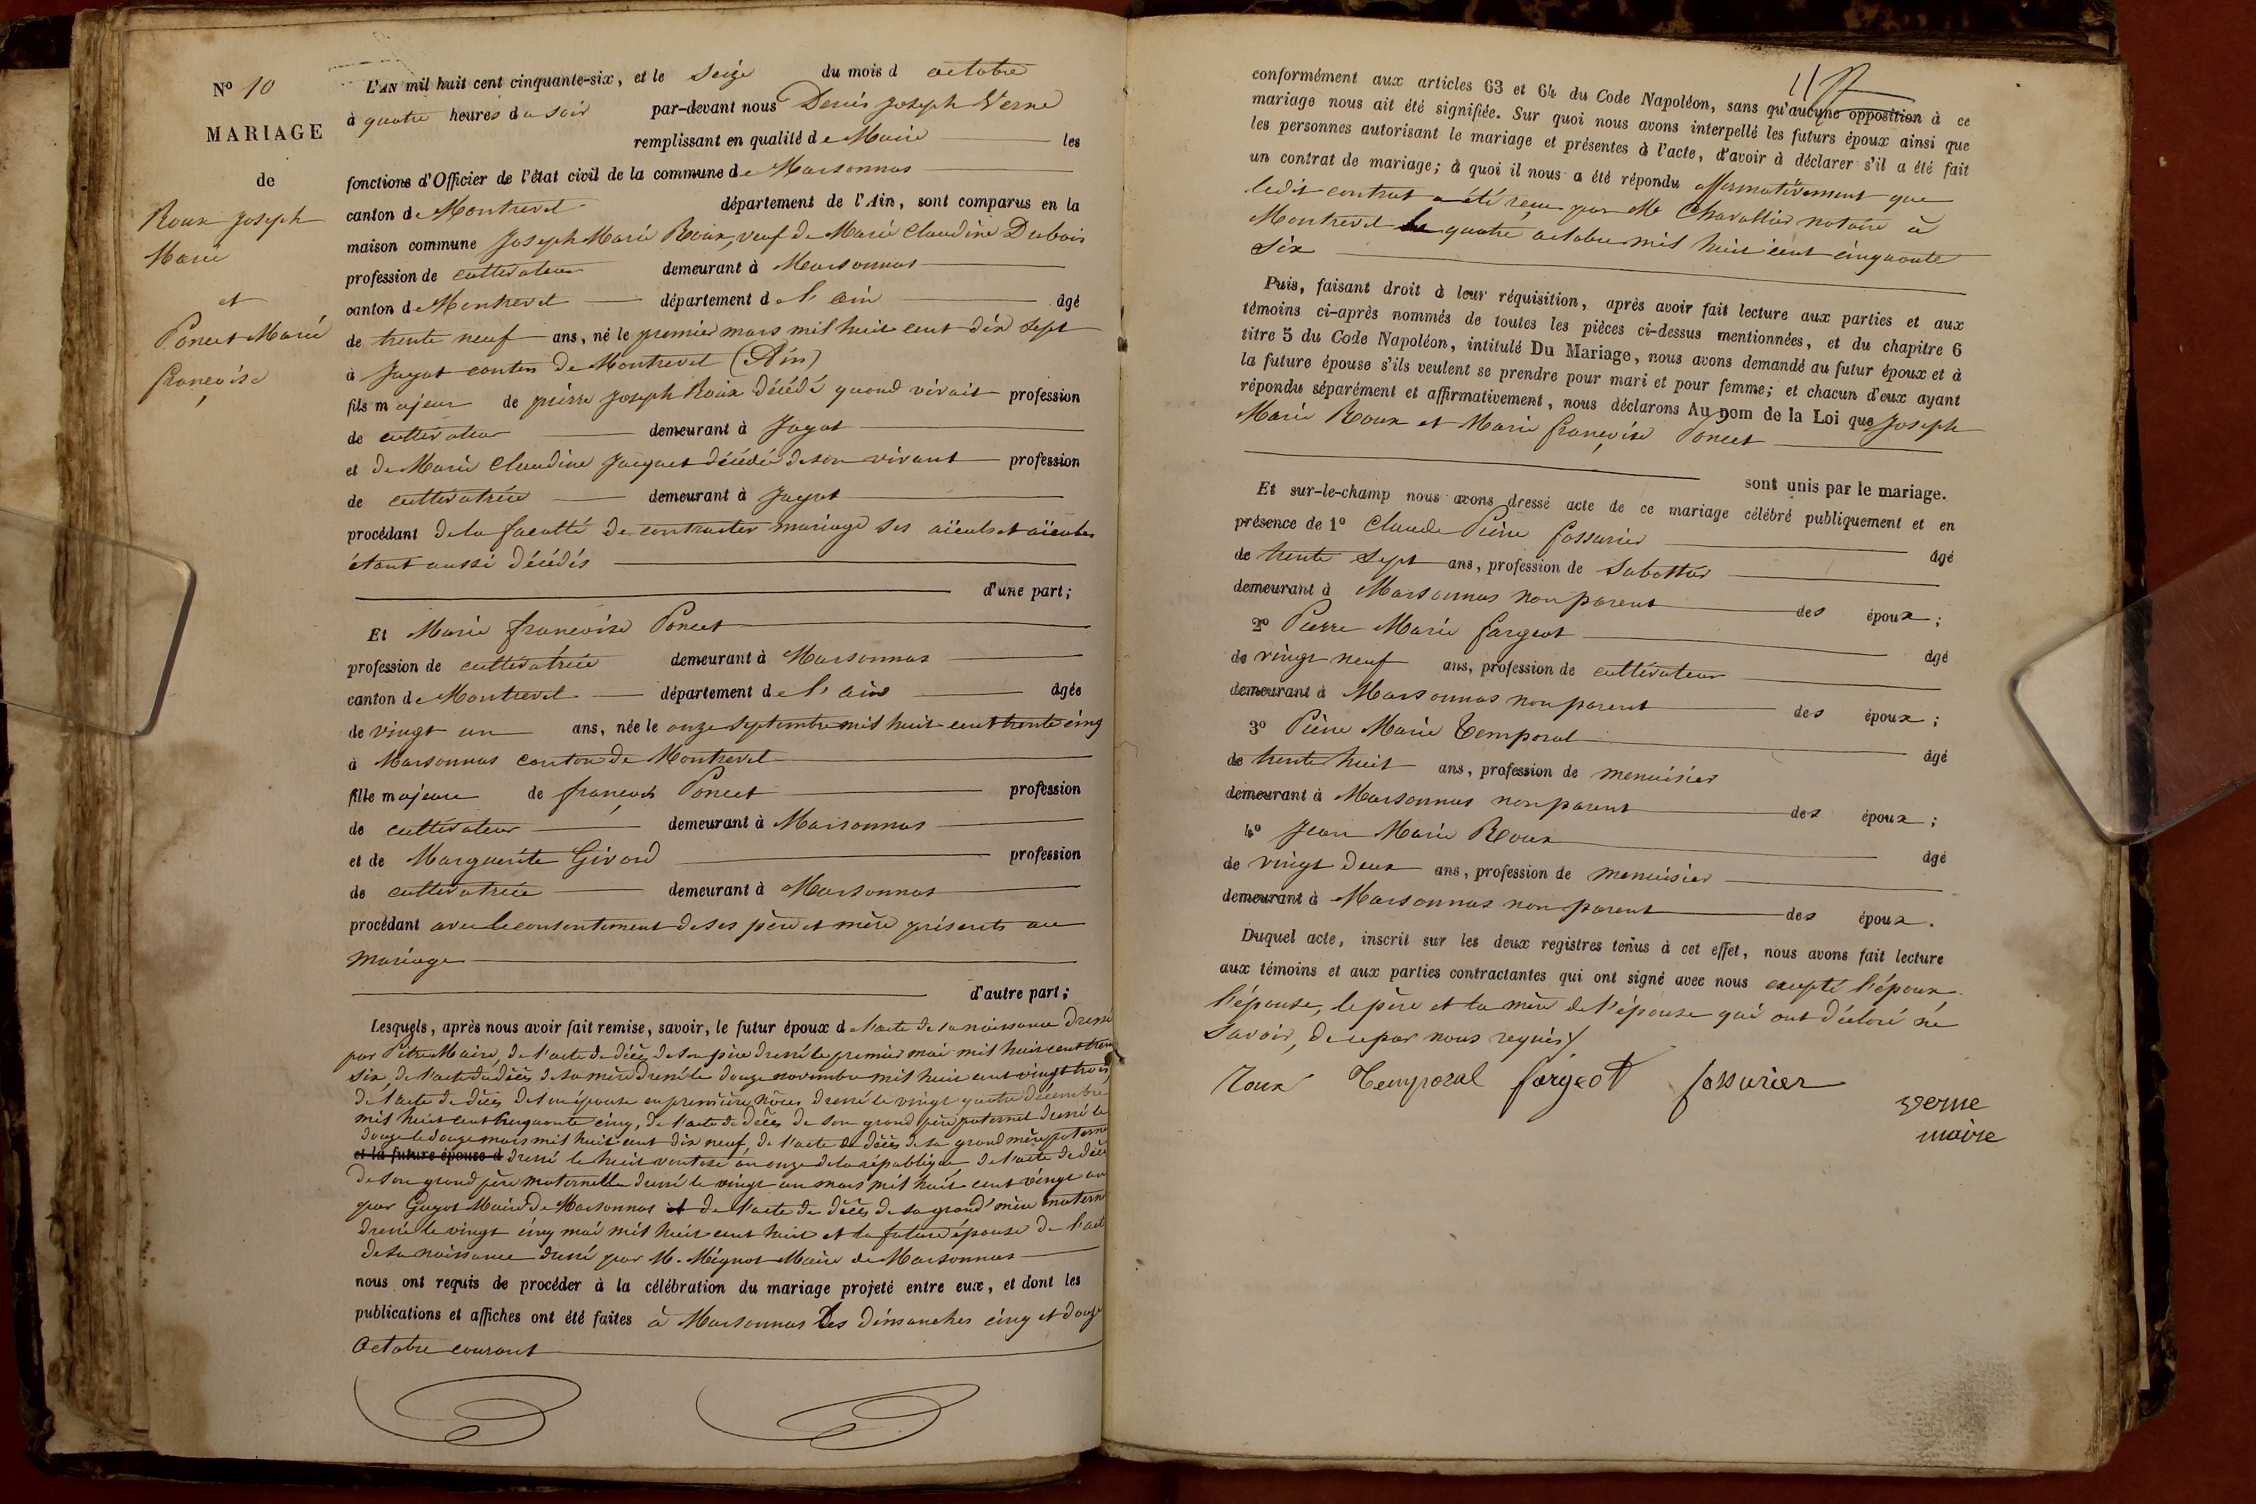 N° 10
MARIAGE
de
Roux Joseph
Marie
et
Poncet Marie
françoise
L'AN mil huit cent cinquante-six, et le seize du mois d octobre
à quatre heures du soir par-devant nous Denis Joseph Verne
remplissant en qualité de Maire les
fonctions d'Officier de l'état civil de la commune de Marsonnas
canton de Montrevel département de l'Ain, sont comparus en la
maison commune Joseph Marie Roux, veuf de Marie Claudine Dubois
profession de cultivateur demeurant à Marsonnas
canton de Montrevel département de l'ain âgé
de trente neuf ans, né le premier mars mil huit cent dix sept
à Jayat canton de Montrevel (Ain)
fils majeur de pierre Joseph Roux décédé quand vivait profession
de cultivateur demeurant à Jayat
et de Marie Claudine Jacquet décédée de son vivant profession
de cultivatrice demeurant à Jayat
procédant de la faculté de contracter mariage ses aïeuls et aïeules
étant aussi décédés
d'une part;
Et Marie françoise Poncet
profession de cultivatrice demeurant à Marsonnas
canton de Montrevel département de l'ain âgée
de vingt un ans, née le onze septembre mil huit cent trente cinq
à Marsonnas canton de Montrevel
fille majeure de françois Poncet profession
de cultivateur demeurant à Marsonnas
et de Marguerite Givord profession
de cultivatrice demeurant à Marsonnas
procédant avec le consentement de ses père et mère présents au
mariage
d'autre part;
Lesquels, après nous avoir fait remise, savoir, le futur époux de l'acte de sa naissance dressé
par Maire, de l'acte de décès de son père dressé le premier mai mil huit cent trente
six, de l'acte de décès de sa mère dressé le douze novembre mil huit cent vingt trois,
de l'acte de décès de son épouse en première nôces dressé le vingt quatre décembre
mil huit cent cinquante cinq, de l'acte de décès de son grand père paternel dressé le
douze le douze mars mil huit cent dix neuf, de l'acte de décès de sa grand mère paternelle
et la future épouse d dressé le huit ventose an onze de la république de l'acte de décès
de son grand père maternelle dressé le vingt un mars mil huit cent vingt un
par Guyot Maire de Marsonnas et de l'acte de décès de sa grand'mère matern
dressé le vingt cinq mai mil huit cent huit et la future épouse de l'act
de sa naissance dressé par M. Mignot Maire de Marsonnas
nous ont requis de procéder à la célébration du mariage projeté entre eux, et dont les
publications et affiches ont été faites à Marsonnas Les dimanches cinq et douze
Octobre courant
117
conformément aux articles 63 et 64 du Code Napoléon, sans qu'aucune opposition à ce
mariage nous ait été signifiée. Sur quoi nous avons interpellé les futurs époux ainsi que
les personnes autorisant le mariage et présentes à l'acte, d'avoir à déclarer s'il a été fait
un contrat de mariage; à quoi il nous a été répondu affirmativement que
ledit contrat a été reçu par Me Chavallier notaire à
Montrevel le quatre octobre mil huit cent cinquante
six
Puis, faisant droit à leur réquisition, après avoir fait lecture aux parties et aux
témoins ci-après nommés de toutes les pièces ci-dessus mentionnées, et du chapitre 6
titre 5 du Code Napoléon, intitulé Du Mariage, nous avons demandé au futur époux et à
la future épouse s'ils veulent se prendre pour mari et pour femme; et chacun d'eux ayant
répondu séparément et affirmativement, nous déclarons Au nom de la Loi que Joseph
Marie Roux et Marie françoise Poncet
sont unis par le mariage.
Et sur-le-champ nous avons dressé acte de ce mariage célébré publiquement et en
présence de 1° Claude Pierre fossurier
âgé
de trente sept ans, profession de Sabottier
demeurant à Marsonnas non parent des époux;
2° Pierre Marie fargeot
âgé
de vingt neuf ans, profession de cultivateur
demeurant à Marsonnas non parent des époux;
3° Pierre Marie Temporal
âgé
de trente huit ans, profession de menuisier
demeurant à Marsonnas non parent des époux;
4° Jean Marie Roux
âgé
de vingt deux ans, profession de menuisier
demeurant à Marsonnas non parent des époux.
Duquel acte, inscrit sur les deux registres tenus à cet effet, nous avons fait lecture
aux témoins et aux parties contractantes qui ont signé avec nous excepté l'époux
l'épouse, le père et la mère de l'épouse qui ont déclaré ne
savoir, de ce par nous requis
roux Temporal fargeot fossurier
Verne
maire